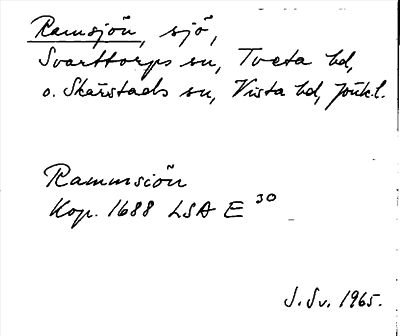 Ramsjön, sjö,
Svarttorps sn, Tveta hd,
o. Skärstads sn, Vista hd, Jönk.l.
Rammsiön
Kop. 1688 LSA E 30
J. Sv. 1965.